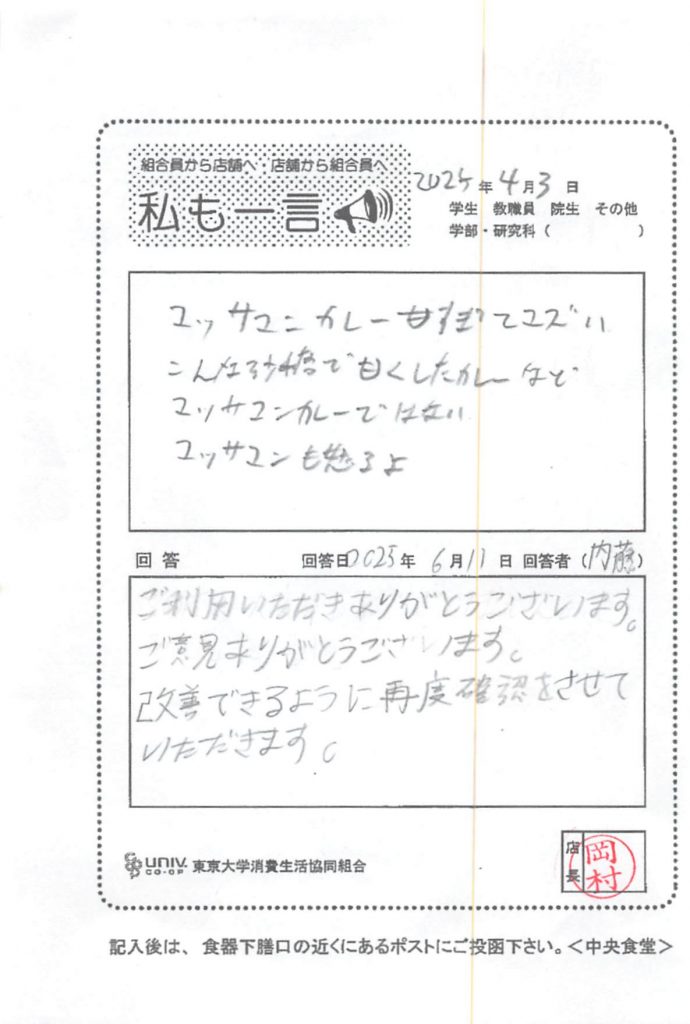 組合員から店舗へ 店舗から組合員へ
私も一言
2025年4月3日
学生 教職員 院生 その他
学部・研究科（ ）
マッサマンカレー甘すぎてマズい
こんな砂糖で甘くしたカレーなど
マッサマンカレーではない
マッサマンも怒るよ
回答 回答日2025年6月11日 回答者（内藤）
ご利用いただきありがとうございます。
ご意見ありがとうございます。
改善できるように再度確認をさせて
いただきます。
UNIV. CO-OP 東京大学消費生活協同組合
店長 岡村
記入後は、食器下膳口の近くにあるポストにご投函下さい。＜中央食堂＞